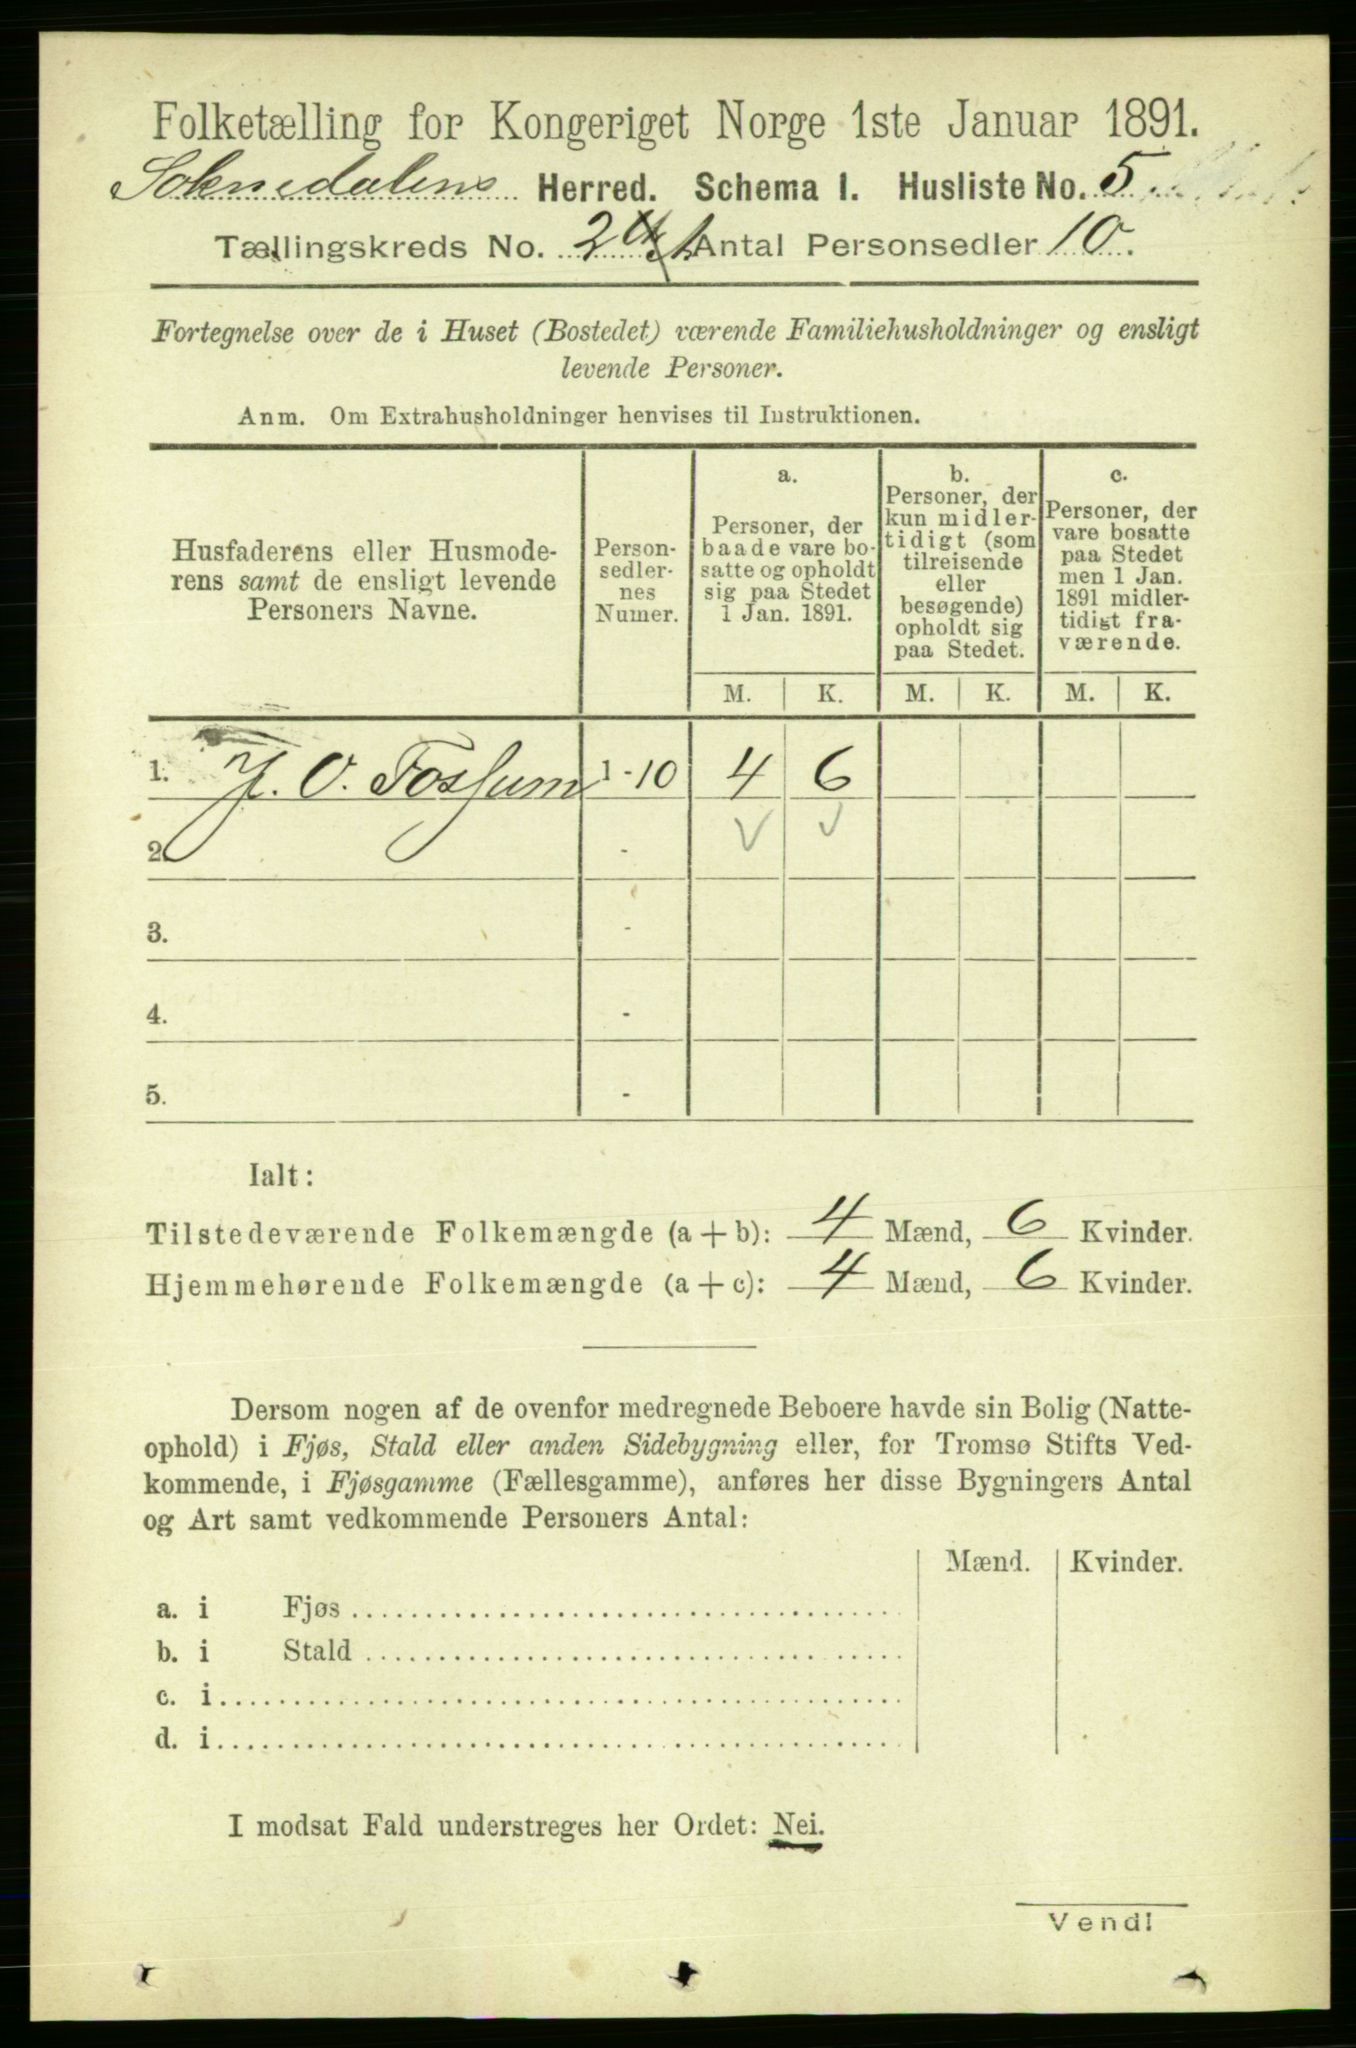 Folketælling for Kongeriget Norge 1ste Januar 1891.
Soknedalens Herred. Schema I. Husliste No. 5
Tællingskreds No. 2 Antal Personsedler 10.
Fortegnelse over de i Huset (Bostedet) værende Familiehusholdninger og ensligt
levende Personer.
Anm. Om Extrahusholdninger henvises til Instruktionen.
Husfaderens eller Husmode-
rens samt de ensligt levende
Personers Navne.
Person-
sedler-
nes
Numer.
a.
Personer, der
baade vare bo-
satte og opholdt
sig paa Stedet
1 Jan. 1891.
b.
Personer, der
kun midler-
tidigt (som
tilreisende
eller
besøgende)
opholdt sig
paa Stedet.
c.
Personer, der
vare bosatte
paa Stedet
men 1 Jan.
1891 midler-
tidigt fra-
værende.
M. K. M. K. M. K.
1. J. O. Fossum 1-10 4 6
2. -
3. -
4. -
5. -
Ialt:
Tilstedeværende Folkemængde (a + b): 4 Mænd, 6 Kvinder.
Hjemmehørende Folkemængde (a + c): 4 Mænd, 6 Kvinder.
Dersom nogen af de ovenfor medregnede Beboere havde sin Bolig (Natte-
ophold) i Fjøs, Stald eller anden Sidebygning eller, for Tromsø Stifts Ved-
kommende, i Fjøsgamme (Fællesgamme), anføres her disse Bygningers Antal
og Art samt vedkommende Personers Antal:
Mænd. Kvinder.
a. i Fjøs
b. i Stald
c. i
d. i
I modsat Fald understreges her Ordet: Nei.
Vend!